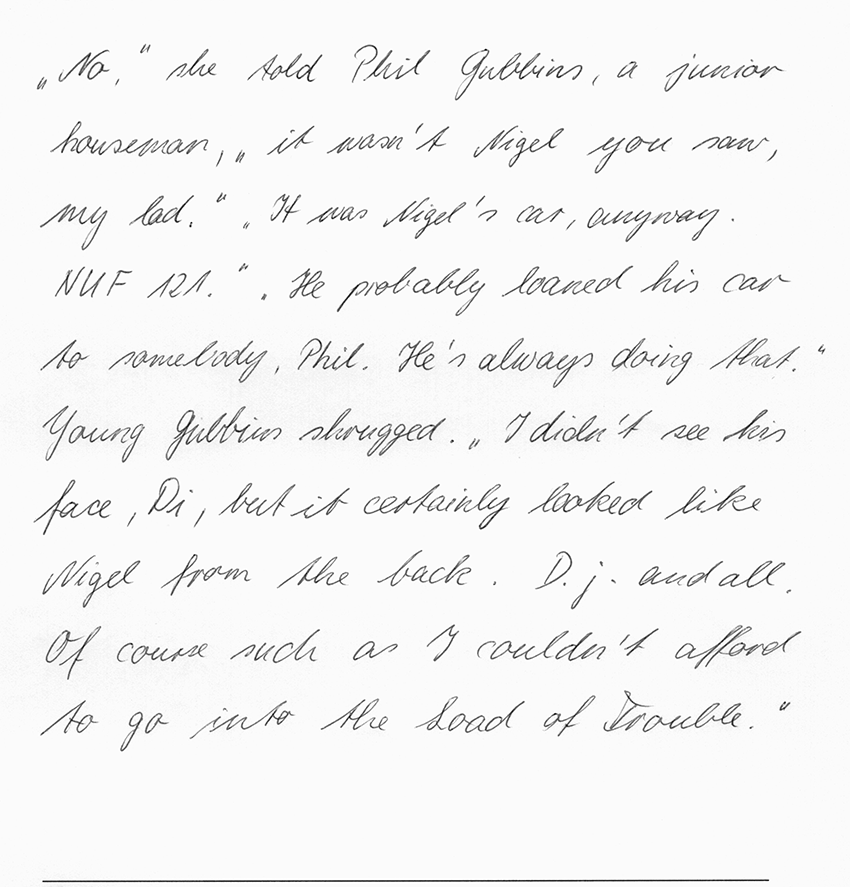 „No,“ she told Phil Gubbins, a junior
houseman, „it wasn't Nigel you saw,
my lad.“ „It was Nigel's car, anyway.
NUF 121.“ „He probably loaned his car
to somebody, Phil. He's always doing that.“
Young Gubbins shrugged. „I didn't see his
face, Di, but it certainly looked like
Nigel from the back. D.j. and all.
Of course such as I couldn't afford
to go into the Load of Trouble.“